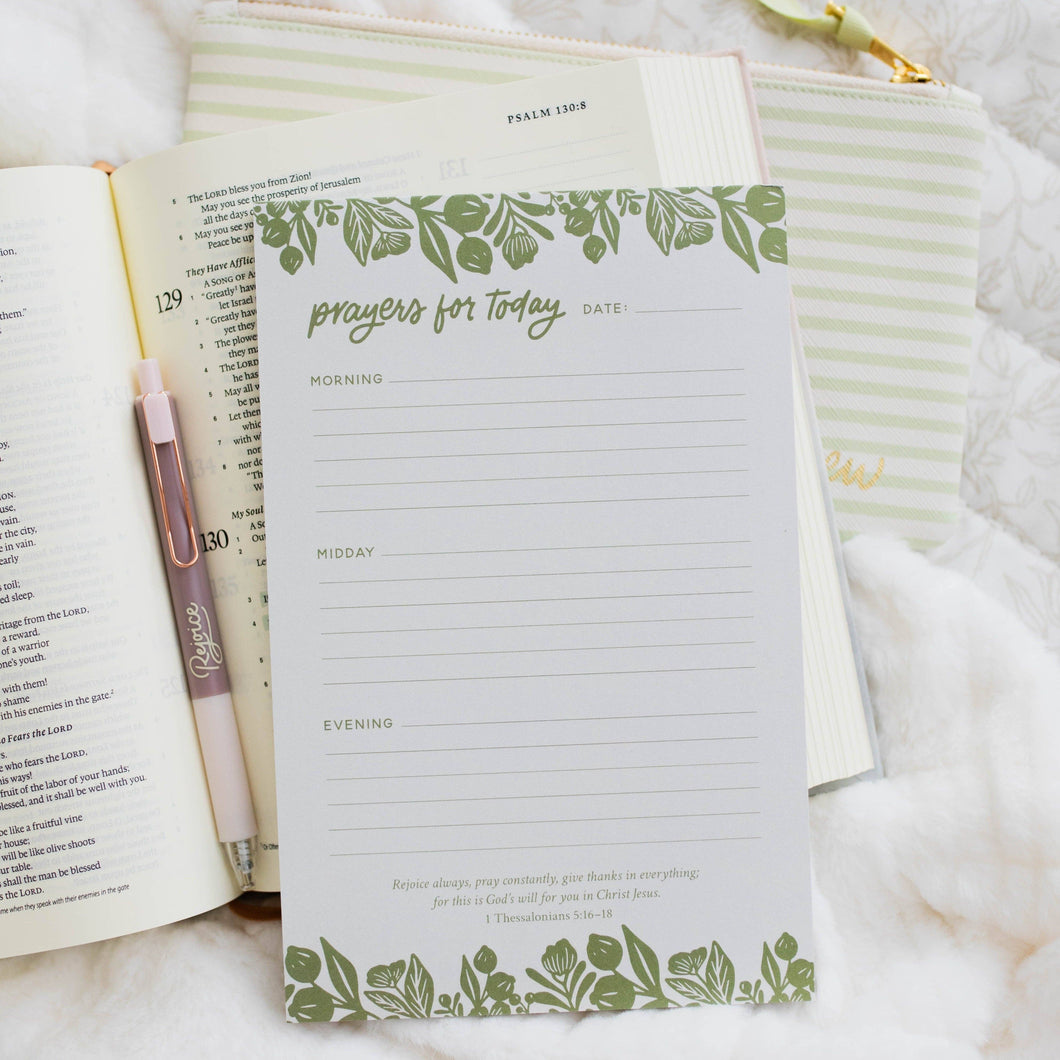 PSALM 130:8
5 The LORD bless you from Zion!
May you see the prosperity of Jerusalem
all the days
6 May you see
Peace be up
They Have Afflic
129
A SONG OF AS
1 "Greatly have
let Israel
2 "Greatly have
yet they
3 The plowe
they ma
4 The LORD
he has
5 May all w
be pu
6 Let them
whic
7 with w
nor
8 nor do
"Th
We
My Soul
130
A So
1 Ou
2
Le
3
4
5
6
ion,
them."
by,
ZION.
use,
vain.
r the city,
e in vain.
early
s toil;
ed sleep.
ritage from the LORD,
a reward.
of a warrior
one's youth.
with them!
o shame
with his enemies in the gate.²
o Fears the LORD
s.
e who fears the LORD,
his ways!
fruit of the labor of your hands;
blessed, and it shall be well with you.
be like a fruitful vine
r house;
will be like olive shoots
ur table.
s shall the man be blessed
s the LORD.
ame when they speak with their enemies in the gate
Or Othe
Rejoice
prayers for today DATE:
MORNING
MIDDAY
EVENING
Rejoice always, pray constantly, give thanks in everything;
for this is God's will for you in Christ Jesus.
1 Thessalonians 5:16–18
ew